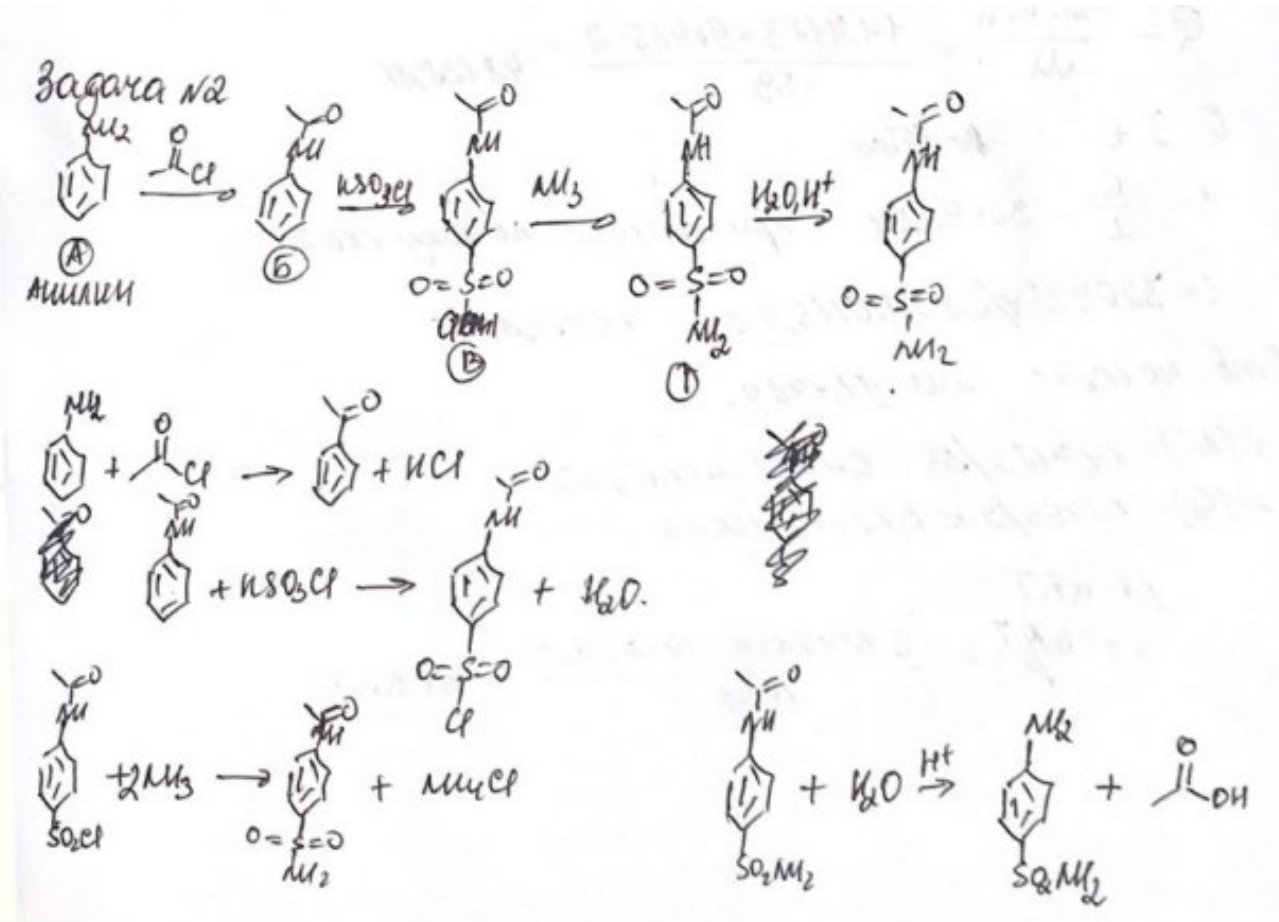 Задача №2
NH2 O Cl
O NH HSO3Cl
O NH NH3
O NH H2O, H+
O NH
А Анилин
Б
O=S=O В
O=S=O NH2 Г
O=S=O NH2
NH2 + O Cl → O + HCl
O NH + HSO3Cl → O NH O=S=O Cl + H2O.
O NH SO2Cl + 2NH3 → O NH O=S=O NH2 + NH4Cl
O NH SO2NH2 + H2O H+ → NH2 SO2NH2 + O OH